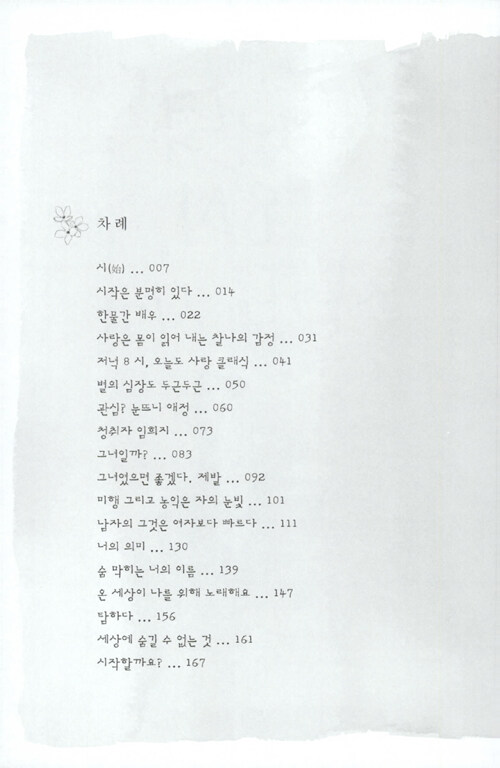 차례
시(始) ... 007
시작은 분명히 있다 ... 014
한물간 배우 ... 022
사랑은 몸이 읽어 내는 찰나의 감정 ... 031
저녁 8 시, 오늘도 사랑 클래식 ... 041
별의 심장도 두근두근 ... 050
관심? 눈뜨니 애정 ... 060
청취자 임희지 ... 073
그녀일까? ... 083
그녀였으면 좋겠다. 제발 ... 092
미행 그리고 농익은 자의 눈빛 ... 101
남자의 그것은 여자보다 빠르다 ... 111
너의 의미 ... 130
숨 막히는 너의 이름 ... 139
온 세상이 나를 위해 노래해요 ... 147
탐하다 ... 156
세상에 숨길 수 없는 것 ... 161
시작할까요? ... 167